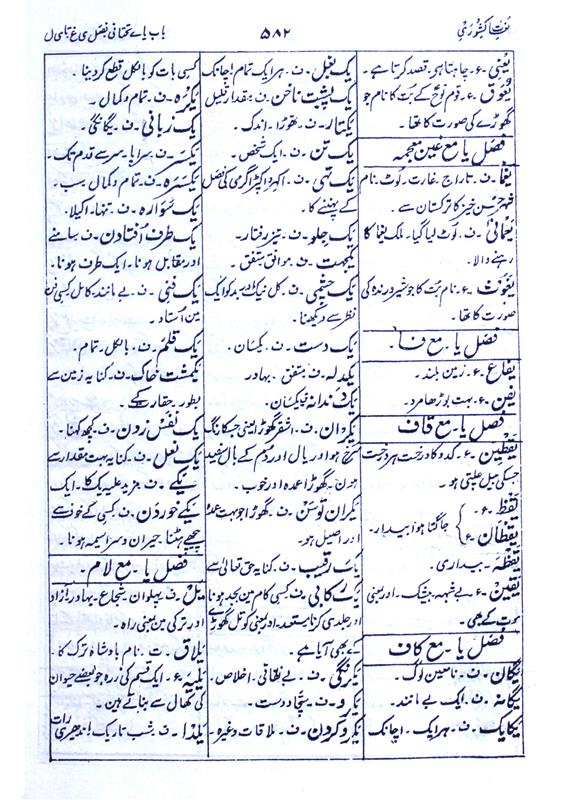 لغات کشوری
۵۸۲
باب یاے تحتانی فصل ی غ تا ی ل
یعنی۔ ع۔ چاہتا ہی۔ قصد کرتا ہے۔
یعوق۔ ع۔ قوم نوح کے بت کا نام جو
گھوڑے کی صورت کا تھا۔
فصل یا۔ مع غین معجمہ
یغما۔ ف۔ تاراج۔ غارت۔ لوٹ۔ نام
شہر حسن خیز کا ترکستان سے۔
یغمائی۔ ف۔ لوٹ لیا گیا۔ ملک یغما کا
رہنے والا۔
یغوث۔ ع۔ نام بت کا جو شیر درندہ کی
صورت کا تھا۔
فصل یا۔ مع فا۔
یفاع۔ ع۔ زمین بلند۔
یفن۔ ع۔ بہت بوڑھا مرد۔
فصل یا۔ مع قاف
یقطین۔ ع۔ کدو کا درخت ہر درخت
جسکی بیل چلتی ہو۔
یقظ۔ ع۔
یقظان۔ ع۔ جاگتا ہوا بیدار۔
یقظہ۔ ع۔ بیداری۔
یقین۔ ع۔ بے شبہہ۔ بیشک۔ اور بمعنی
موت کے بھی۔
فصل یا۔ مع کاف
یگان۔ ف۔
یگانہ۔ ف۔ ایک بے مانند۔
یکایک۔ ف۔ ہر ایک۔ اچانک
یک بغل۔ ف۔ ہر ایک تمام اچانک
یک پشت ناخن۔ ف۔ بمقدار قلیل
یکتار۔ ف۔ تھوڑا۔ اندک۔
یک تن۔ ف۔ ایک شخص۔
یک تہی۔ ف۔ اکہرا کپڑا گرمی کی فصل
کے پہننے کا۔
یک جلو۔ ف۔ تیز رفتار۔
یکجہت۔ ف۔ موافق متفق۔
یک چشمی۔ ف۔ کل نیک و بد کو ایک
نظر سے دیکھنا۔
یک دست۔ ف۔ یکسان۔
یکدلہ۔ ف۔ متفق۔ بہادر
یک دندانہ یکسان۔
یکران۔ ف۔ اشقر گھوڑا یعنی جسکا رنگ
سرخ ہو اور یال اور دم کے بال سفید
ہون۔ گھوڑا عمدہ اور خوب۔
یکران توسن۔ ف۔ گھوڑا جو بہت عمدہ
اور اصیل ہو۔
یک رقیب۔ ف۔ کنایہ حق تعالیٰ سے
یک رکابی۔ ف۔ کسی کام مین بجد ہونا
اور جلدی کرنا۔ مستعد۔ اور بمعنی کوتل گھوڑے
کے بھی آیا ہے۔
یکرنگی۔ ف۔ بے نفاقی۔ اخلاص۔
یکرو۔ ف۔ سچا دوست۔
یکرو کردن۔ ف۔ ملاقات وغیرہ۔
کسی بات کو بالکل قطع کر دینا۔
یکرہ۔ ف۔ تمام و کمال۔
یک زبانی۔ ف۔ یگانگی۔
یکسر۔ ف۔ سراپا۔ سر سے قدم تک۔
یکسرہ۔ ف۔ تمام و کمال سب۔
یک سوارہ۔ ف۔ تنہا۔ اکیلا۔
یک طرف افتادن۔ ف۔ سامنے
اور مقابل ہونا۔ ایک طرف ہونا۔
یک فنی۔ ف۔ بے مانند کامل کسی فن
مین استاد۔
یک قلم۔ ف۔ بالکل۔ تمام۔
یکمشت خاک۔ ف۔ کنایہ زمین سے
بطور حقارت کے۔
یک نفس زدن۔ ف۔ کچھ کہنا۔
یک نعل۔ ف۔ کنایہ بہت مقدار سے
یکے۔ ف۔ مزید علیہ یک کا۔ ایک
یکے خوردن۔ ف۔ کسی کے خوف سے
پیچھے ہٹنا۔ حیران و سراسیمہ ہونا۔
فصل یا۔ مع لام۔
یل۔ ف۔ پہلوان۔ شجاع۔ بہادر آزاد
اور ترکی مین بمعنی راہ۔
یلاق۔ ت۔ نام بادشاہ ترک کا۔
یلبہ۔ ع۔ ایک قسم کی زرہ جو بعضے حیوان
کی کھال سے بناتے ہین۔
یلدا۔ ف۔ شب تاریک اندھیری رات